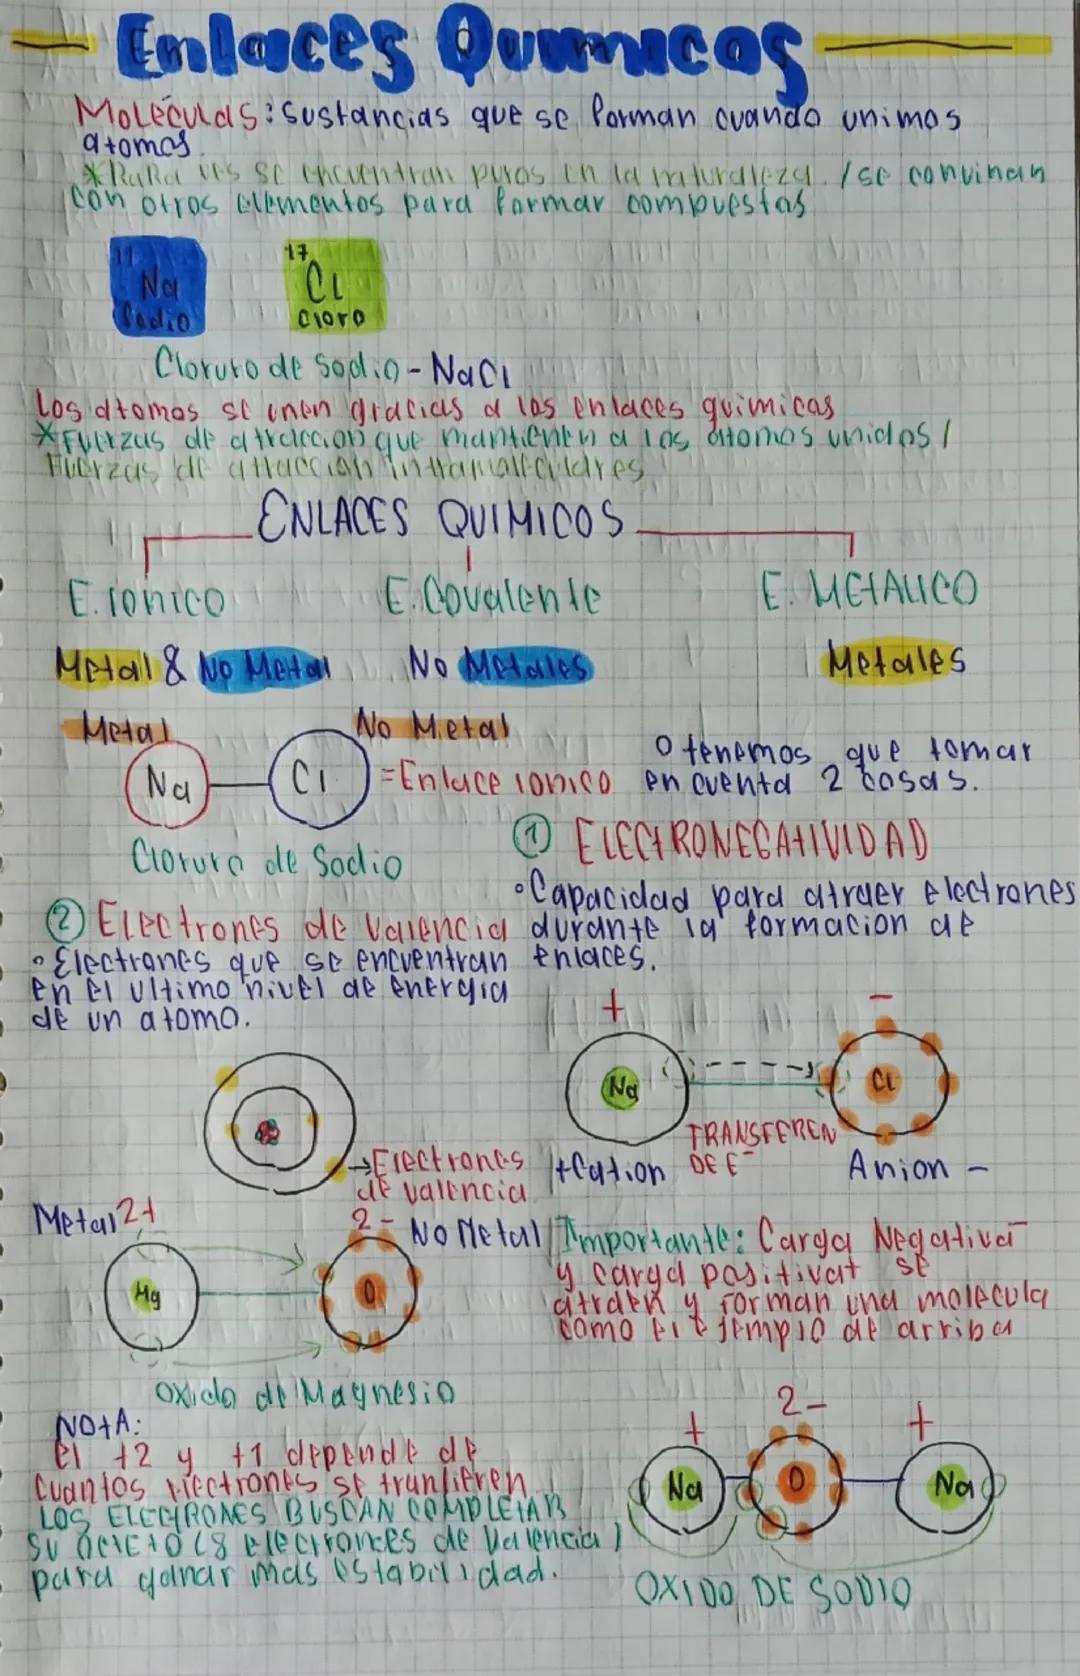 Enlaces Quimicos
Moléculas: Sustancias que se forman cuando unimos
atomos.
*Rara ves se encuentran puros en la naturaleza. / se convinan
con otros elementos para formar compuestas
11
Na
Sodio
17
Cl
Cloro
Cloruro de Sodio - NaCl
Los atomos se unen gracias a los enlaces quimicas
*Fuerzas de atraccion que mantienen a los atomos unidos /
Fuerzas de attraccion intramoleculares.
ENLACES QUIMICOS
E. ionico
E. Covalente
E. METALICO
Metal & No Metal
No Metales
Metales
Metal
No Metal
Na
Cl
=Enlace ionico
Cloruro de Sodio
O tenemos que tomar
en cuenta 2 cosas.
① ELECTRONEGATIVIDAD
°Capacidad para atraer electrones
durante la formacion de
enlaces.
② Electrones de valencia
°Electrones que se encuentran
en el ultimo nivel de energia
de un atomo.
→Electrones
de valencia
+
Na
-
Cl
TRANSFEREN
DE E-
+Cation
Anion -
Metal 2+
Mg
2-
No Metal
O
Oxido de Magnesio
Importante: Carga Negativa-
y carga positivat se
atraen y forman una molecula
como el ejemplo de arriba
NOtA:
El +2 y +1 depende de
cuantos electrones se tranfieren
LOS ELECTRONES BUSCAN COMPLETAR
SU OCTETO (8 electrones de valencia)
para ganar mas estabilidad.
+
Na
2-
O
+
Na
OXIDO DE SODIO